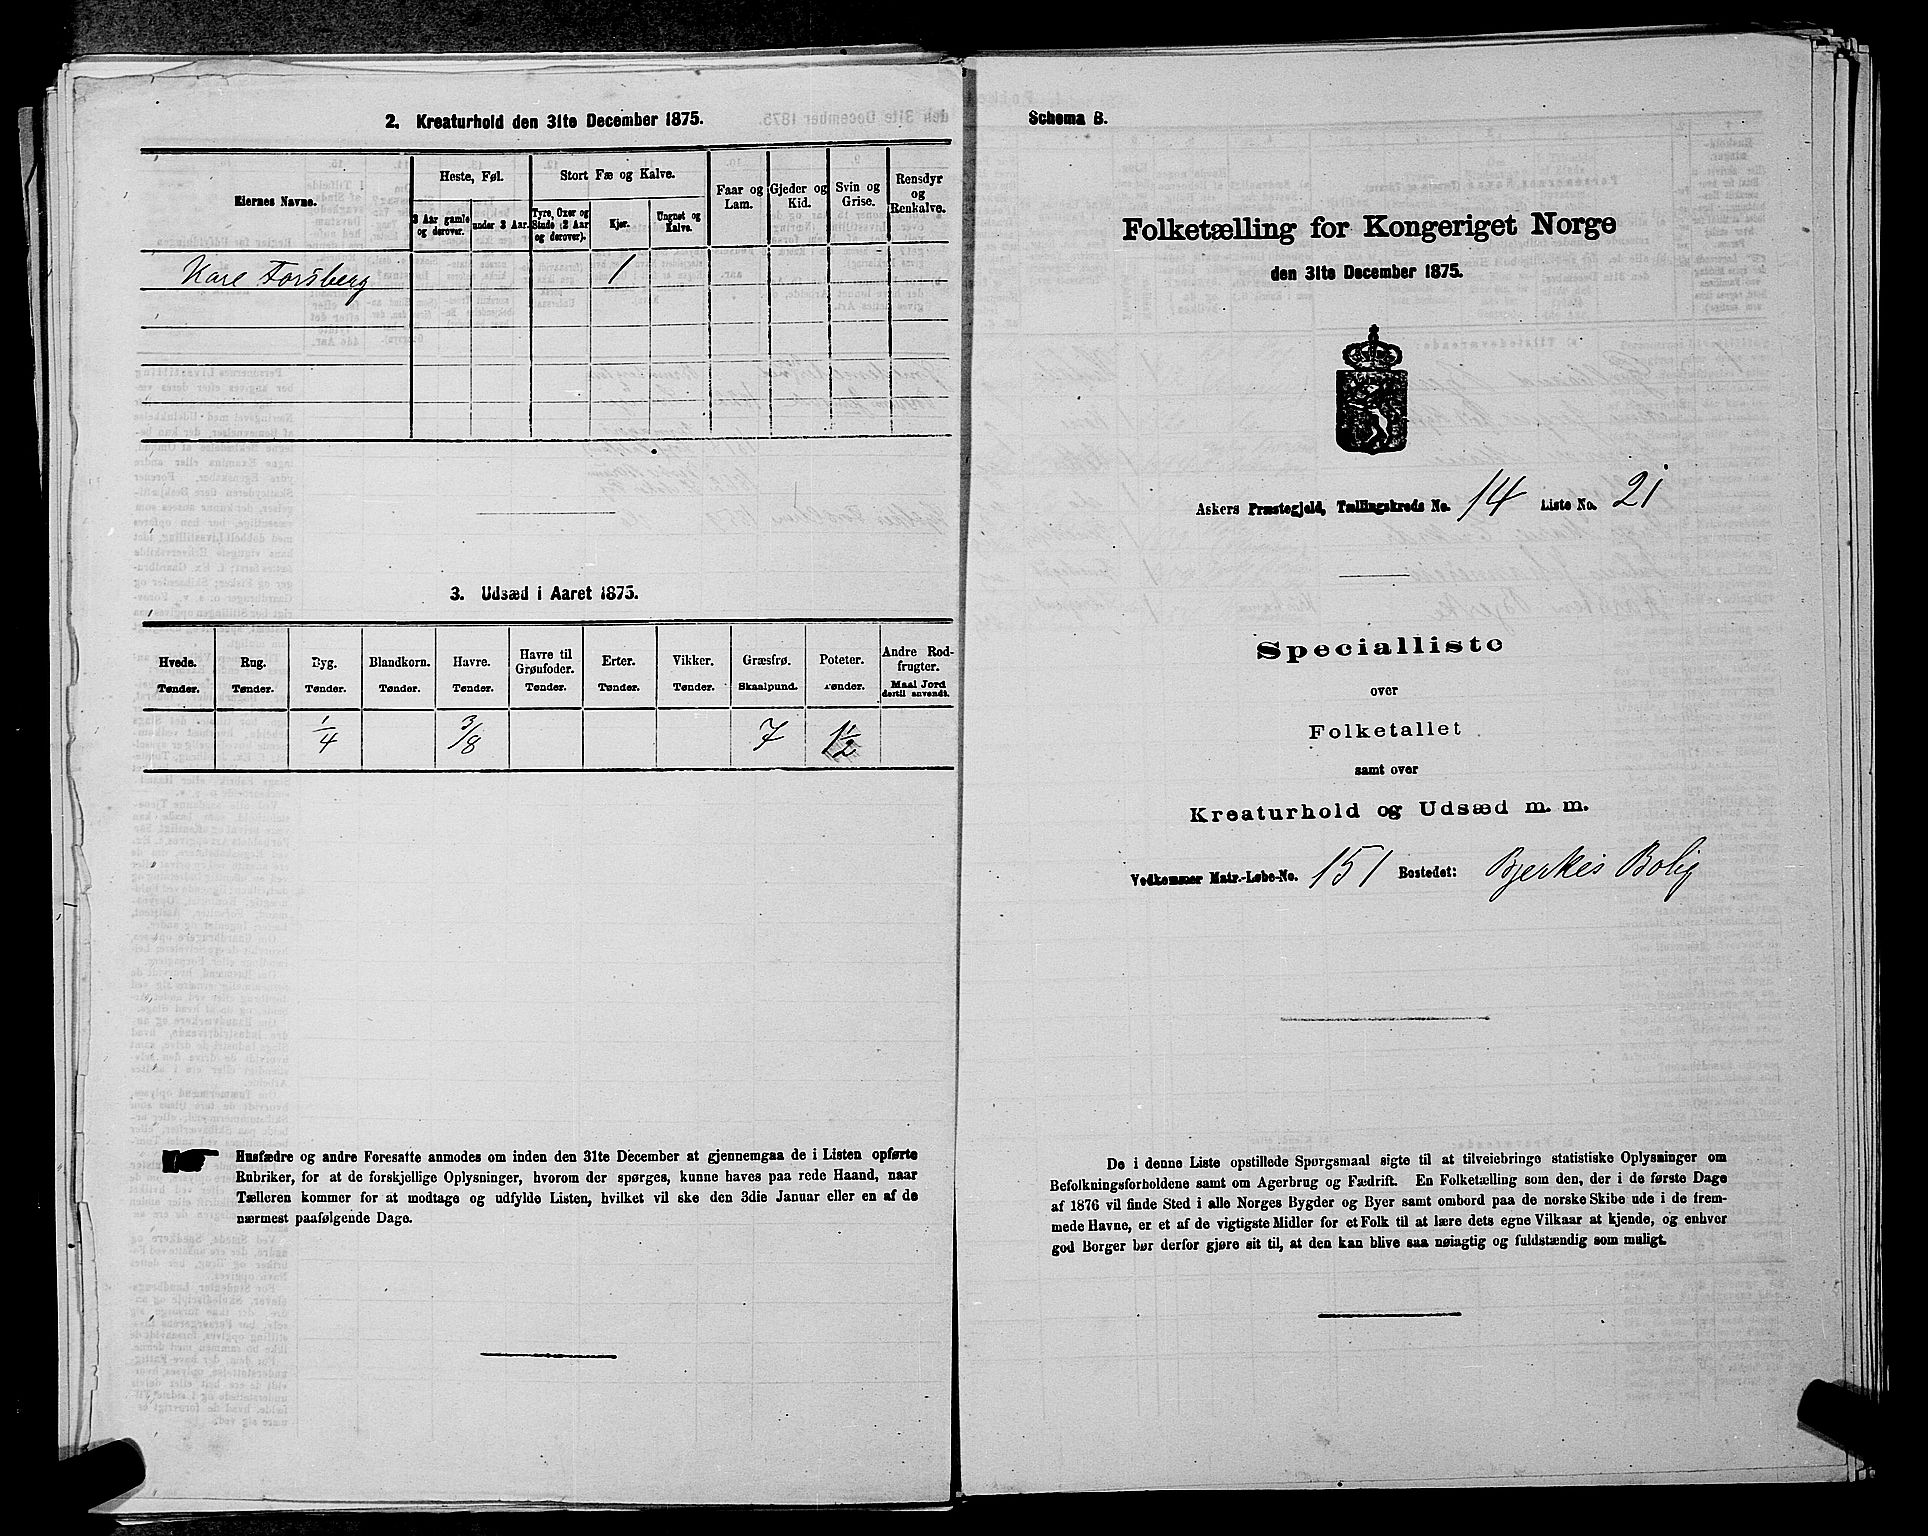 2. Kreaturhold den 31te December 1875.
Eiernes Navne.
Heste, Føl.
Stort Fæ og Kalve.
Faar og Lam.
Gjeder og Kid.
Svin og Grise.
Rensdyr og Renkalve.
3 Aar gamle og derover.
under 3 Aar.
Tyre, Oxer og Stude (2 Aar og derover).
Kjør.
Ungnøt og Kalve.
Karl Forsberg 1
3. Udsæd i Aaret 1875.
Hvede. Rug. Byg. Blandkorn. Havre. Havre til Grønfoder. Erter. Vikker. Græsfrø. Poteter. Andre Rodfrugter.
Tønder. Tønder. Tønder. Tønder. Tønder. Tønder. Tønder. Tønder. Skaalpund. Tønder. Maal Jord dertil anvendt.
1/4 3/8 7 1 1/2
Husfædre og andre Foresatte anmodes om inden den 31te December at gjennemgaa de i Listen opførte
Rubriker, for at de forskjellige Oplysninger, hvorom der spørges, kunne haves paa rede Haand, naar
Tælleren kommer for at modtage og udfylde Listen, hvilket vil ske den 3die Januar eller en af de
nærmest paafølgende Dage.
Schema B.
Folketælling for Kongeriget Norge
den 31te December 1875.
Askers Præstegjeld, Tællingskreds No. 14 Liste No. 21
Specialliste
over
Folketallet
samt over
Kreaturhold og Udsæd m. m.
Vedkommer Matr.-Løbe-No. 151 Bostedet: Bjerkes Bolig
De i denne Liste opstillede Spørgsmaal sigte til at tilveiebringe statistiske Oplysninger om
Befolkningsforholdene samt om Agerbrug og Fædrift. En Folketælling som den, der i de første Dage
af 1876 vil finde Sted i alle Norges Bygder og Byer samt ombord paa de norske Skibe ude i de frem-
mede Havne, er et af de vigtigste Midler for et Folk til at lære dets egne Vilkaar at kjende, og enhver
god Borger bør derfor gjøre sit til, at den kan blive saa nøiagtig og fuldstændig som muligt.